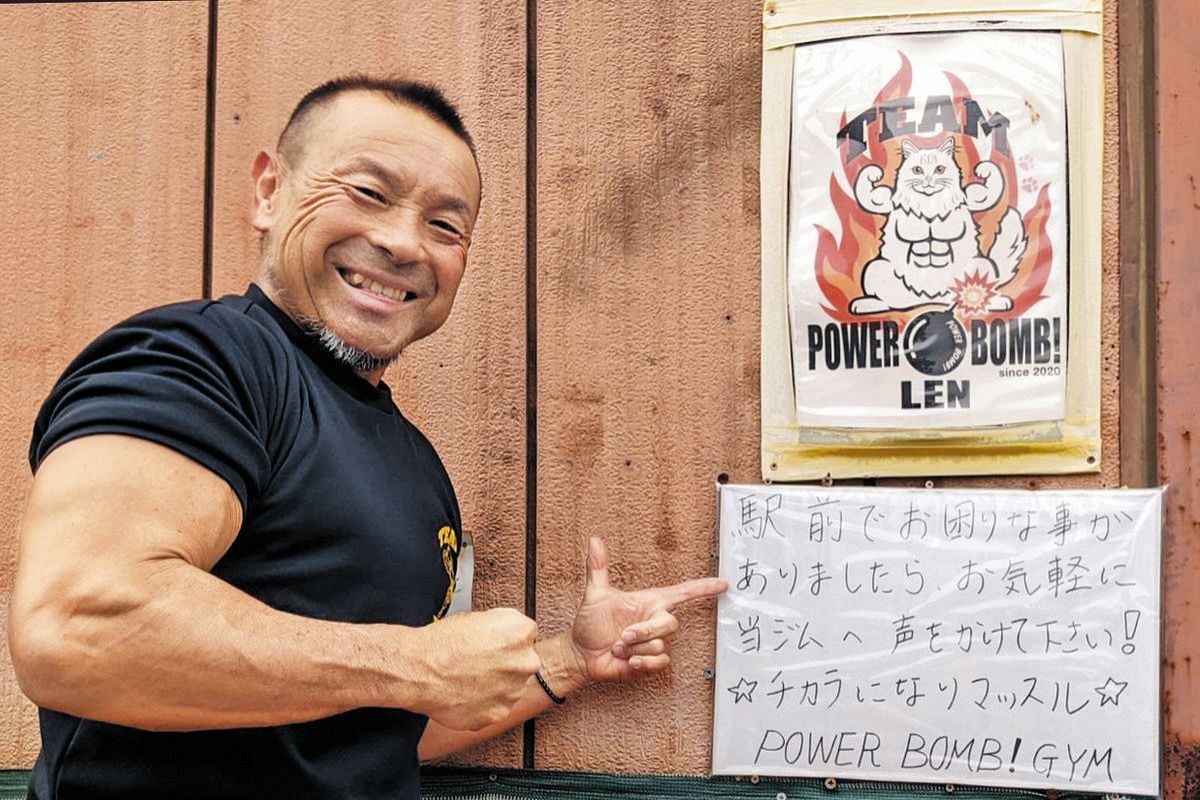 TEAM
POWER BOMB!
POWER BOMB!
since 2020
LEN
駅前でお困りな事が
ありましたら、お気軽に
当ジムへ 声をかけて下さい!
☆チカラになりマッスル☆
POWER BOMB! GYM
TEAM